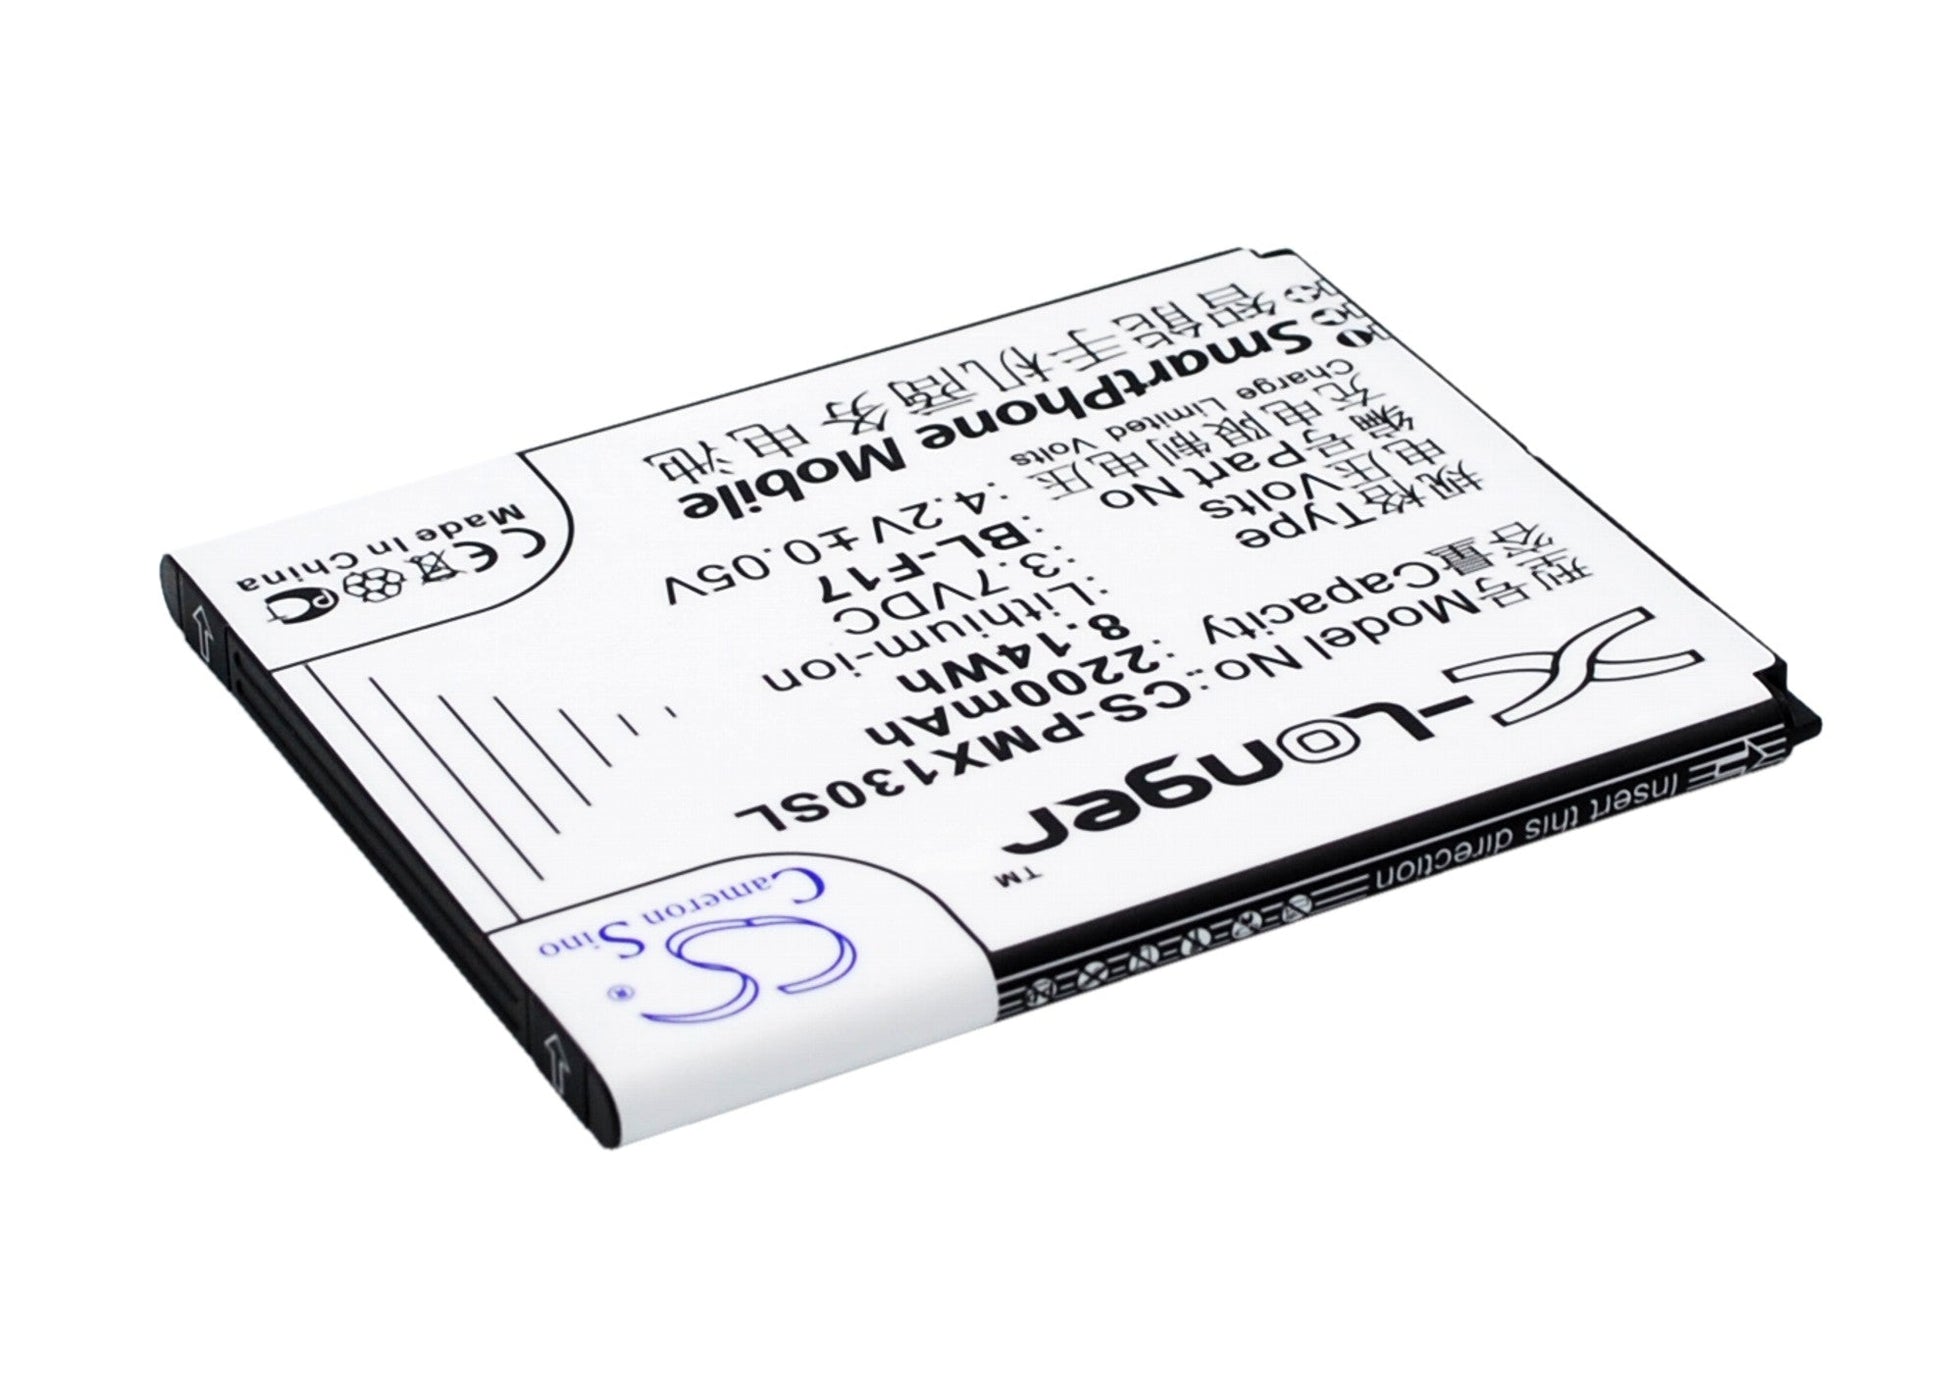 X-Longer™
型号Model No.: CS-PMX130SL
容量Capacity : 2200mAh
8.14Wh
规格Type : Lithium-ion
电压Volts : 3.7VDC
编号Part No : BL-F17
充电限制电压 : 4.2V±0.05V
Charge Limited Volts
SmartPhone Mobile
智能手机商务电池
Cameron Sino®
CS
CE
PC
Made in China
Insert this direction